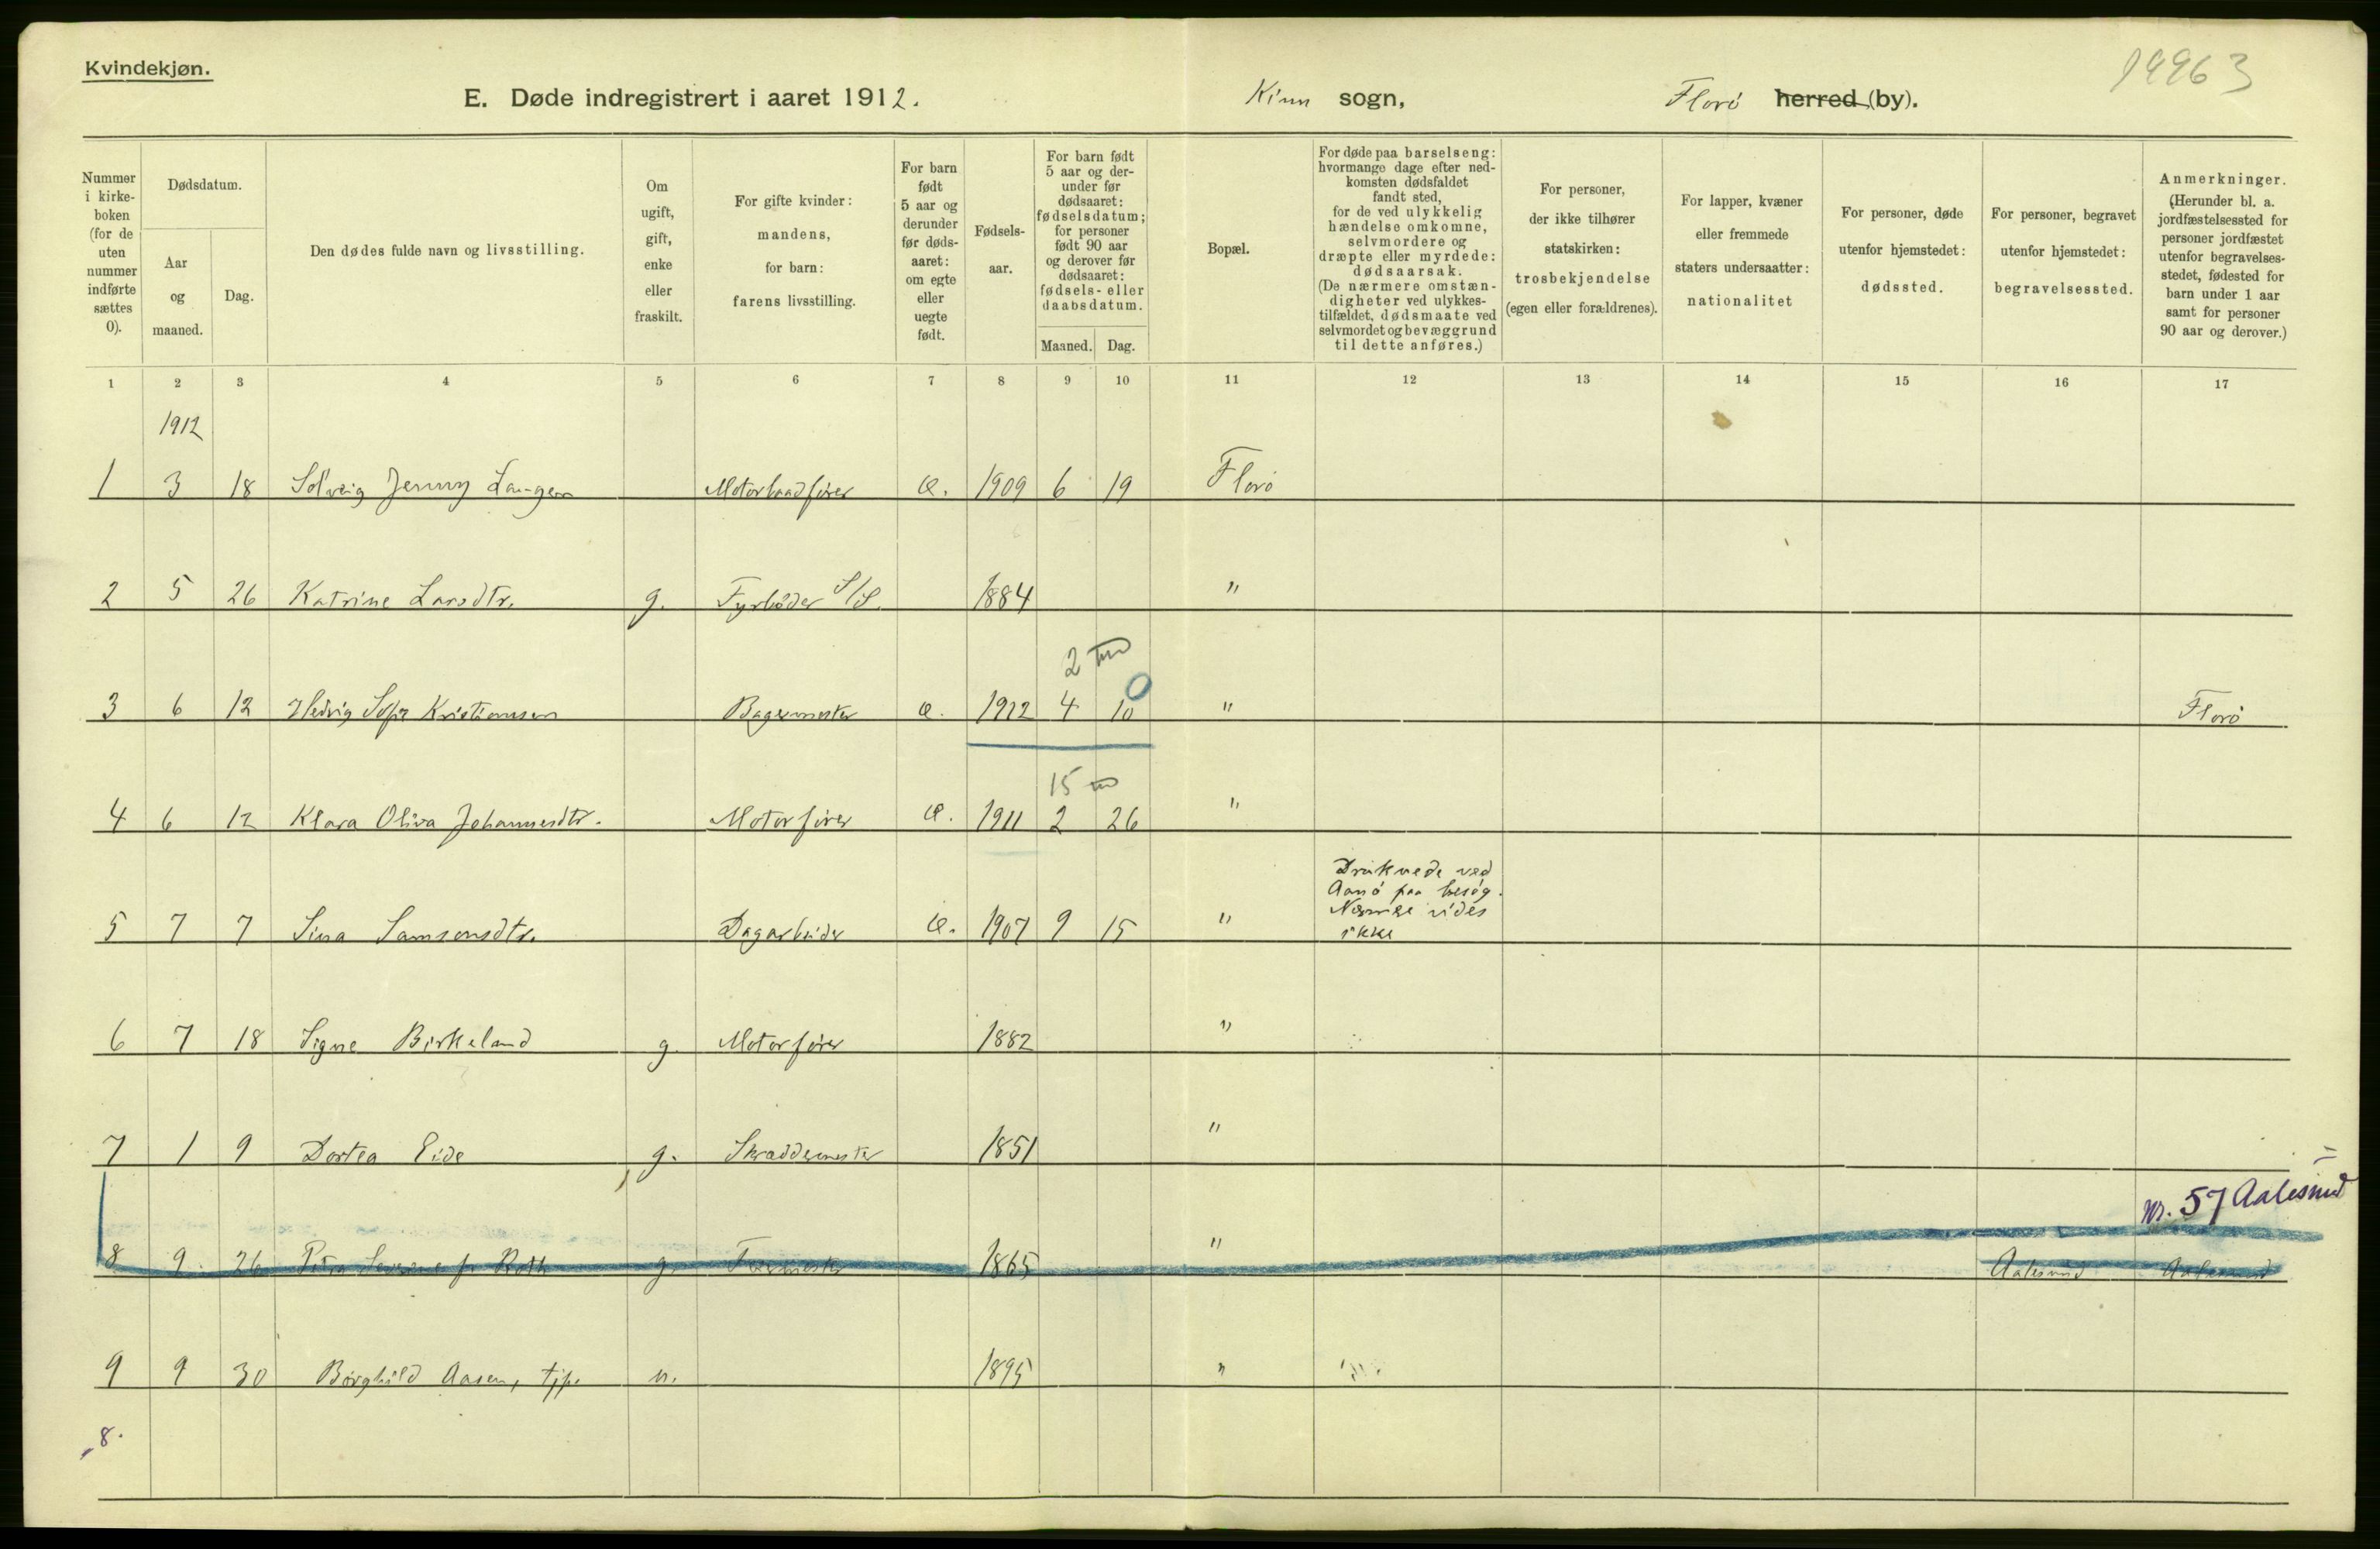 Kvindekjøn.
19963
E. Døde indregistrert i aaret 1912. Kinn sogn, Florø herred (by).
Nummer i kirke-boken (for de uten nummer indførte sættes 0).
Dødsdatum.
Aar og maaned.
Dag.
Den dødes fulde navn og livsstilling.
Om ugift, gift, enke eller fraskilt.
For gifte kvinder: mandens, for barn: farens livsstilling.
For barn født 5 aar og derunder før døds-aaret: om egte eller uegte født.
Fødsels-aar.
For barn født 5 aar og der-under før dødsaaret: fødselsdatum; for personer født 90 aar og derover før dødsaaret: fødsels- eller daabsdatum.
Maaned. Dag.
Bopæl.
For døde paa barselseng: hvormange dage efter ned-komsten dødsfaldet fandt sted, for de ved ulykkelig hændelse omkomne, selvmordere og dræpte eller myrdede: dødsaarsak. (De nærmere omstæn-digheter ved ulykkes-tilfældet, dødsmaate ved selvmordet og bevæggrund til dette anføres.)
For personer, der ikke tilhører statskirken: trosbekjendelse (egen eller forældrenes).
For lapper, kvæner eller fremmede staters undersaatter: nationalitet
For personer, døde utenfor hjemstedet: dødssted.
For personer, begravet utenfor hjemstedet: begravelsessted.
Anmerkninger. (Herunder bl. a. jordfæstelsessted for personer jordfæstet utenfor begravelses-stedet, fødested for barn under 1 aar samt for personer 90 aar og derover.)
1 2 3 4 5 6 7 8 9 10 11 12 13 14 15 16 17
1912
1 3 18 Solveig Jenny Langen Motorbaadfører e. 1909 6 19 Florø
2 5 26 Katrine Larsdtr. g. Fyrbøder S/S. 1884 "
2 m
0
3 6 12 Hedvig Sofie Kristiansen Bagermester e. 1912 4 10 " Florø
15 m
4 6 12 Klara Oliva Johannesdtr. Motorfører e. 1911 2 26 "
Druknede ved
Aanø paa besøg.
Nærmere vides
5 7 7 Sina Samsonsdtr. Dagarbeider e. 1907 9 15 " ikke
6 7 18 Signe Birkeland g. Motorfører 1882 "
7 1 9 Dortea Eide g. Skræddermester 1851 "
Nr. 57 Aalesund
8 9 26 g. 1865 " Aalesund Aalesund
9 9 30 Borghild Aasen, tjp. u. 1895 "
8.